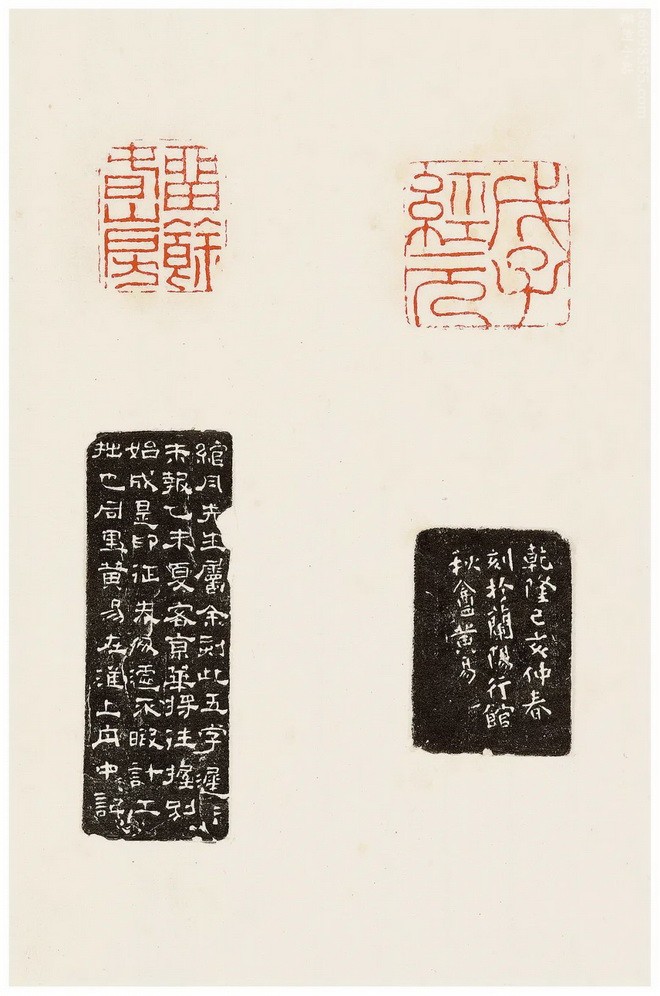 戊子
經元
留餘
春山房
乾隆己亥仲春
刻於蘭陽行館
秋盦黃易
綰月先生屬余刻此五字遲〻
未報乙未夏客京華將往握別
始成是印征匆遽不暇計工
拙也同里黃易在淮上舟中識